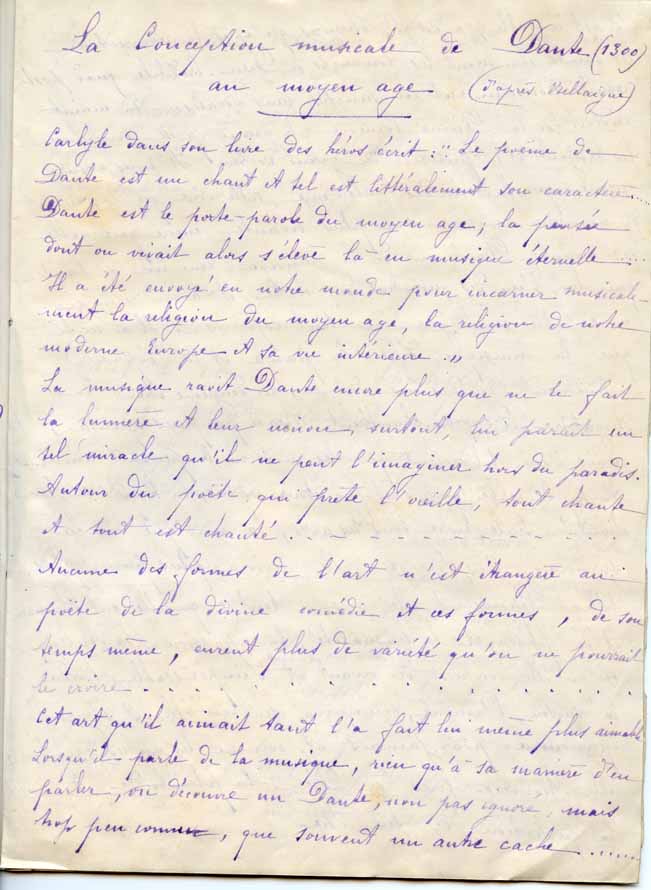 La Conception musicale de Dante (1300)
au moyen age (d'après Bellaigue)
Carlyle dans son livre des héros écrit : " Le poëme de
Dante est un chant et tel est littéralement son caractère....
Dante est le porte-parole du moyen age; la pensée
dont on vivait alors s'élève là en musique éternelle ....
Il a été envoyé en notre monde pour incarner musicale-
ment la religion du moyen age, la religion de notre
moderne Europe et sa vie intérieure. "
La musique ravit Dante encore plus que ne le fait
la lumière et leur union, surtout, lui parait un
tel miracle qu'il ne peut l'imaginer hors du paradis.
Autour du poëte qui prête l'oreille, tout chante
et tout est chanté. - - - - - - - - -
Aucune des formes de l'art n'est étrangère au
poëte de la divine comédie et ces formes, de son
temps même, eurent plus de variété qu'on ne pourrait
le croire . . . . . . . . . . . . . .
Cet art qu'il aimait tant l'a fait lui même plus aimable
Lorsqu'il parle de la musique, rien qu'à sa manière d'en
parler, on découvre un Dante, non pas ignoré, mais
trop peu connu, que souvent un autre cache .......